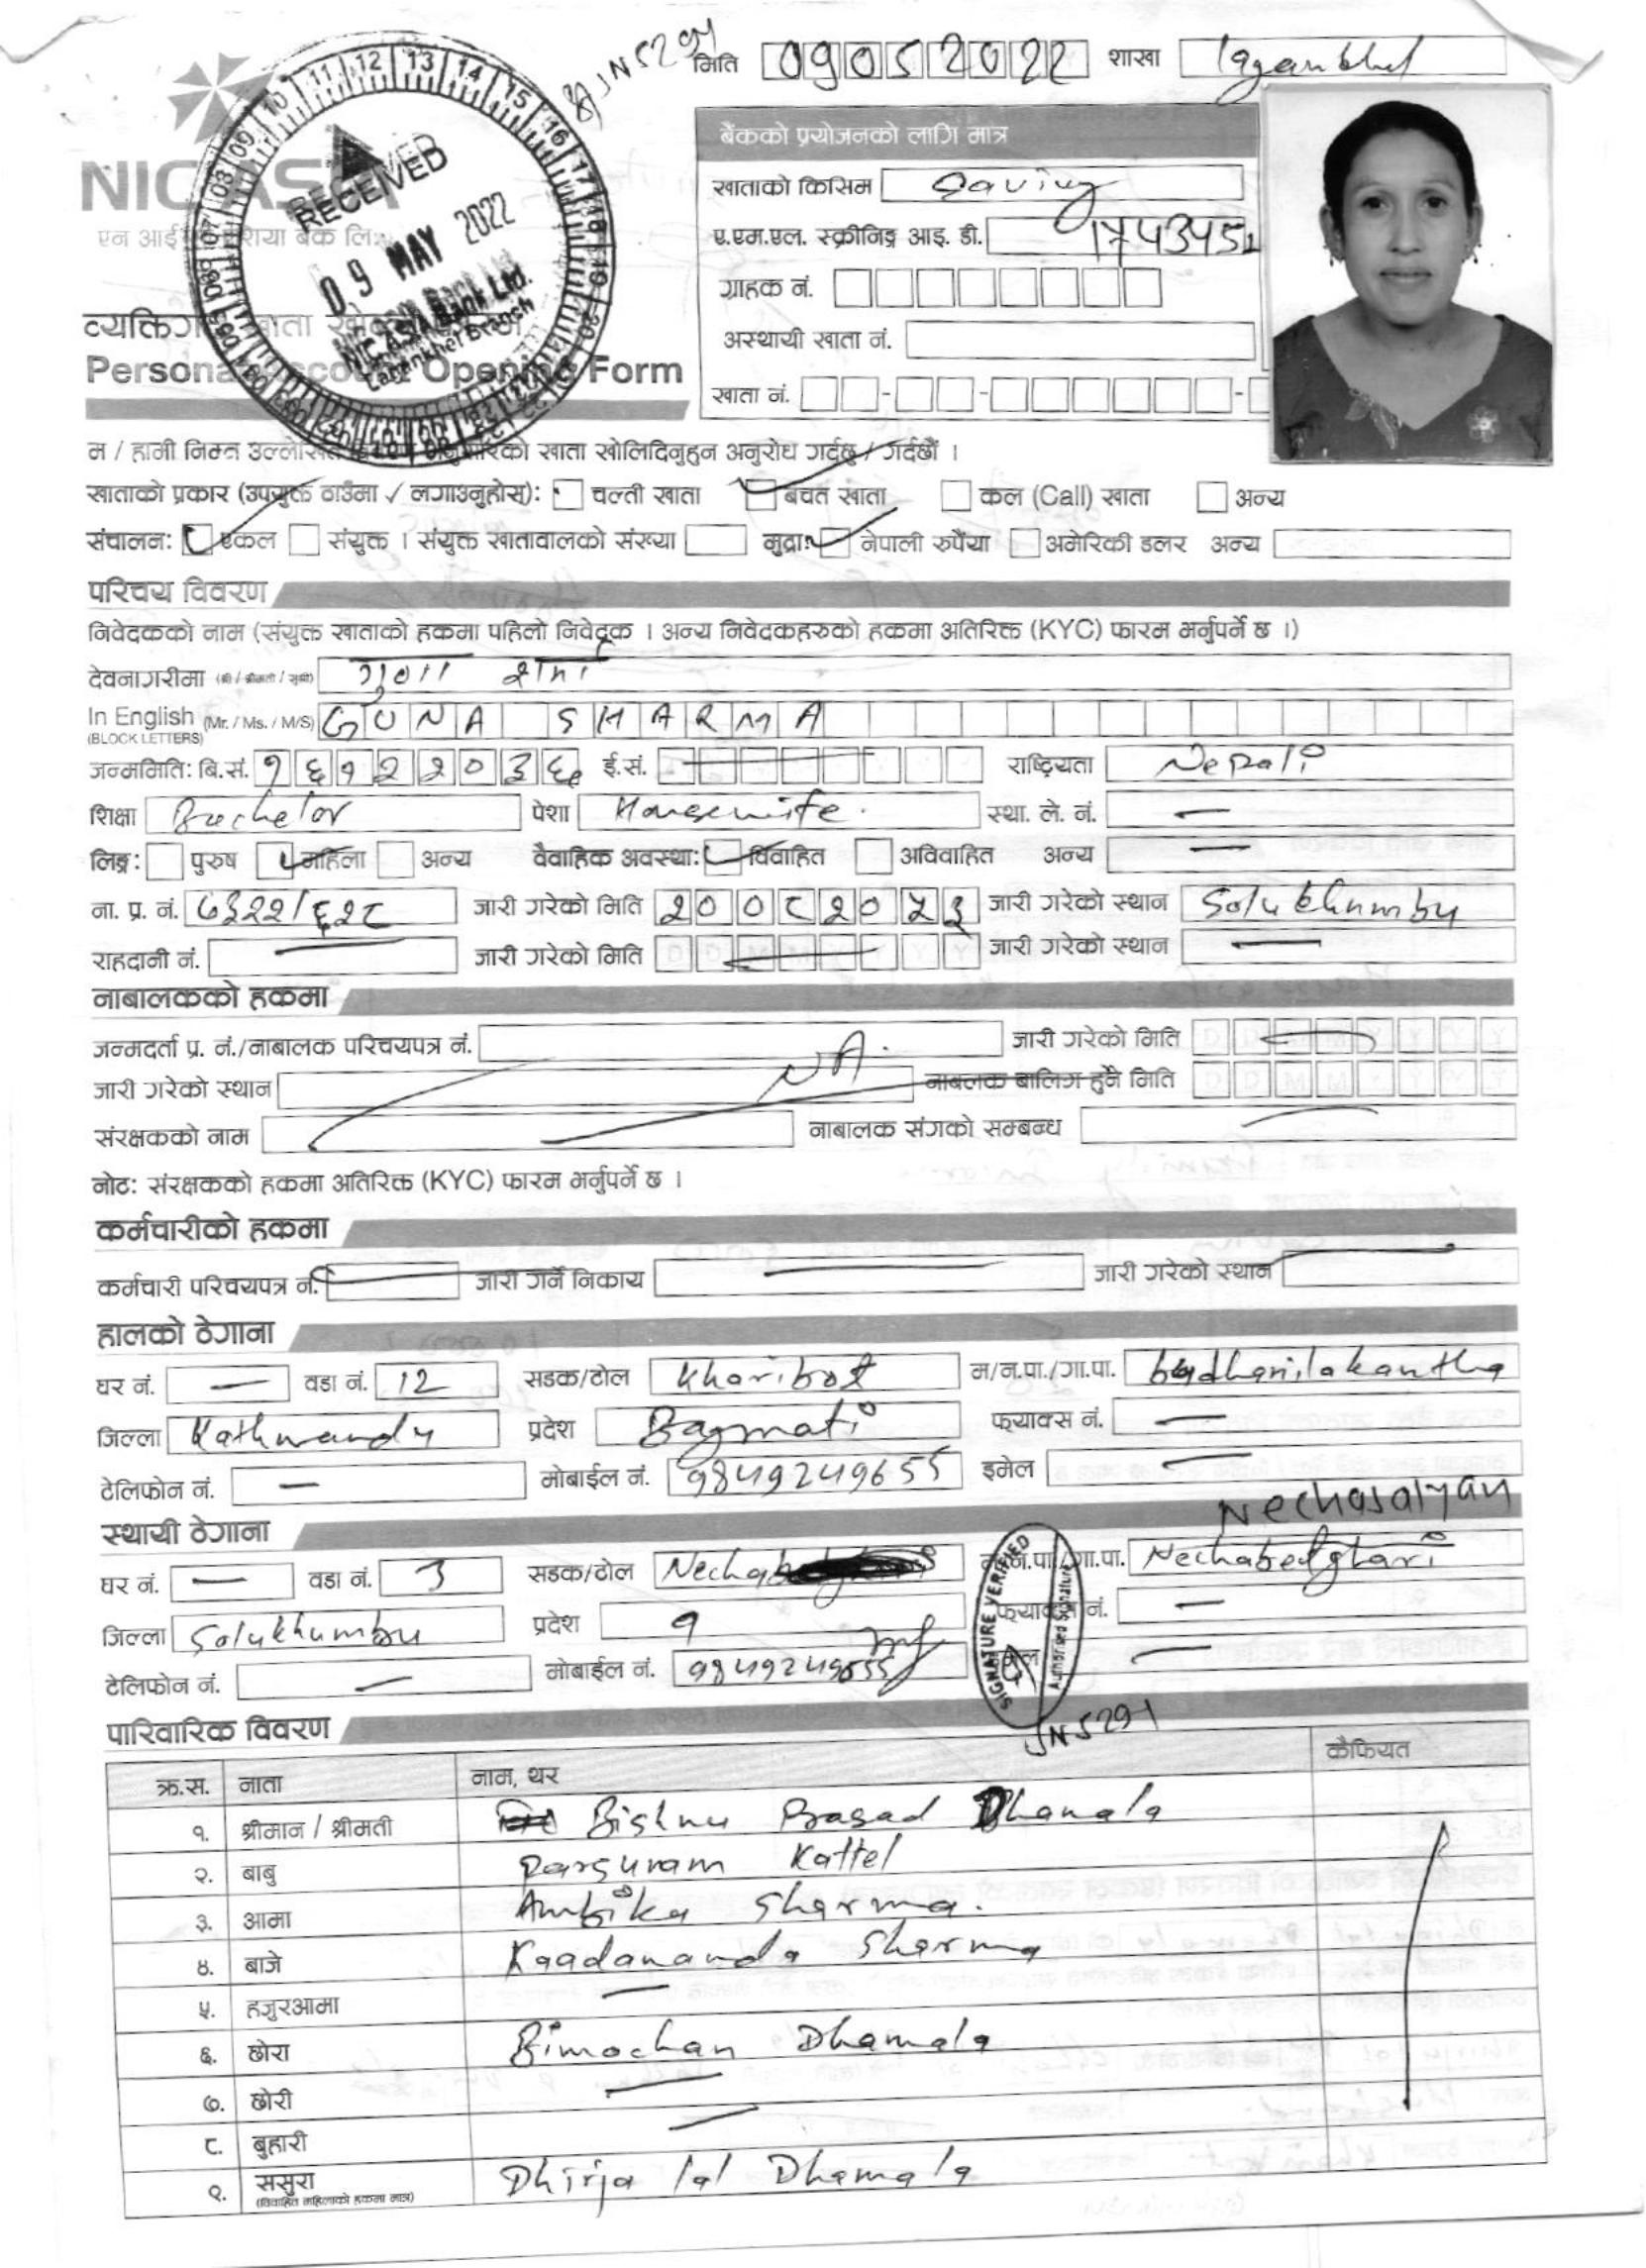 मिति 09052022 शाखा lagankhel
JN5291
NIC ASIA
एन आई सी एशिया बैंक लि.
RECEIVED
09 MAY 2022
NIC ASIA Bank Ltd.
Lagankhel Branch
बैंकको प्रयोजनको लागि मात्र
खाताको किसिम Saving
ए.एम.एल. स्क्रीनिङ्ग आइ. डी.
ग्राहक नं.
अस्थायी खाता नं.
खाता नं.
व्यक्तिगत खाता खोल्ने फारम
Personal Account Opening Form
म / हामी निम्न उल्लेखित खाता खोलिदिनुहुन अनुरोध गर्दछु / गर्दछौं ।
खाताको प्रकार (उपयुक्त ठाउँमा ✓ लगाउनुहोस्): चल्ती खाता बचत खाता कल (Call) खाता अन्य
संचालन: एकल संयुक्त । संयुक्त खातावालको संख्या मुद्रा: नेपाली रुपैंया अमेरिकी डलर अन्य
परिचय विवरण
निवेदकको नाम (संयुक्त खाताको हकमा पहिलो निवेदक । अन्य निवेदकहरुको हकमा अतिरिक्त (KYC) फारम भर्नुपर्ने छ ।)
देवनागरीमा (श्री / श्रीमती / सुश्री) गुणा शर्मा
In English (Mr. / Ms. / M/S) GUNA SHARMA
(BLOCK LETTERS)
जन्ममिति: बि.सं. ई.सं. राष्ट्रियता Nepali
शिक्षा Bachelor पेशा Housewife. स्था. ले. नं. —
लिङ्ग: पुरुष महिला अन्य वैवाहिक अवस्था: विवाहित अविवाहित अन्य —
ना. प्र. नं. ७३२२/६२८ जारी गरेको मिति २००८२०५३ जारी गरेको स्थान Solukhumbu
राहदानी नं. — जारी गरेको मिति जारी गरेको स्थान —
नाबालकको हकमा
जन्मदर्ता प्र. नं./नाबालक परिचयपत्र नं. NA. जारी गरेको मिति
जारी गरेको स्थान नाबलक बालिग हुने मिति
संरक्षकको नाम नाबालक संगको सम्बन्ध
नोट: संरक्षकको हकमा अतिरिक्त (KYC) फारम भर्नुपर्ने छ ।
कर्मचारीको हकमा
कर्मचारी परिचयपत्र नं. जारी गर्ने निकाय जारी गरेको स्थान
हालको ठेगाना
घर नं. — वडा नं. 12 सडक/टोल Kharibot म/न.पा./गा.पा. budhanilakantha
जिल्ला Kathmandu प्रदेश Bagmati फ्याक्स नं. —
टेलिफोन नं. — मोबाईल नं. 9849249655 इमेल —
स्थायी ठेगाना Nechasalyan
घर नं. — वडा नं. 3 सडक/टोल म/न.पा./गा.पा. Nechabedghari
जिल्ला Solukhumbu प्रदेश १ फ्याक्स नं. —
टेलिफोन नं. — मोबाईल नं. 9849249655 इमेल —
SIGNATURE VERIFIED
Authorised Signature
JN5291
पारिवारिक विवरण
क्र.स. नाता नाम, थर कैफियत
१. श्रीमान / श्रीमती Bishnu Prasad Dhamala
२. बाबु Parsuram Kattel
३. आमा Ambika Sharma.
४. बाजे Kaadananda Sharma
५. हजुरआमा —
६. छोरा Bimochan Dhamala
७. छोरी —
८. बुहारी —
९. ससुरा Dhirja lal Dhamala
(विवाहित महिलाको हकमा मात्र)